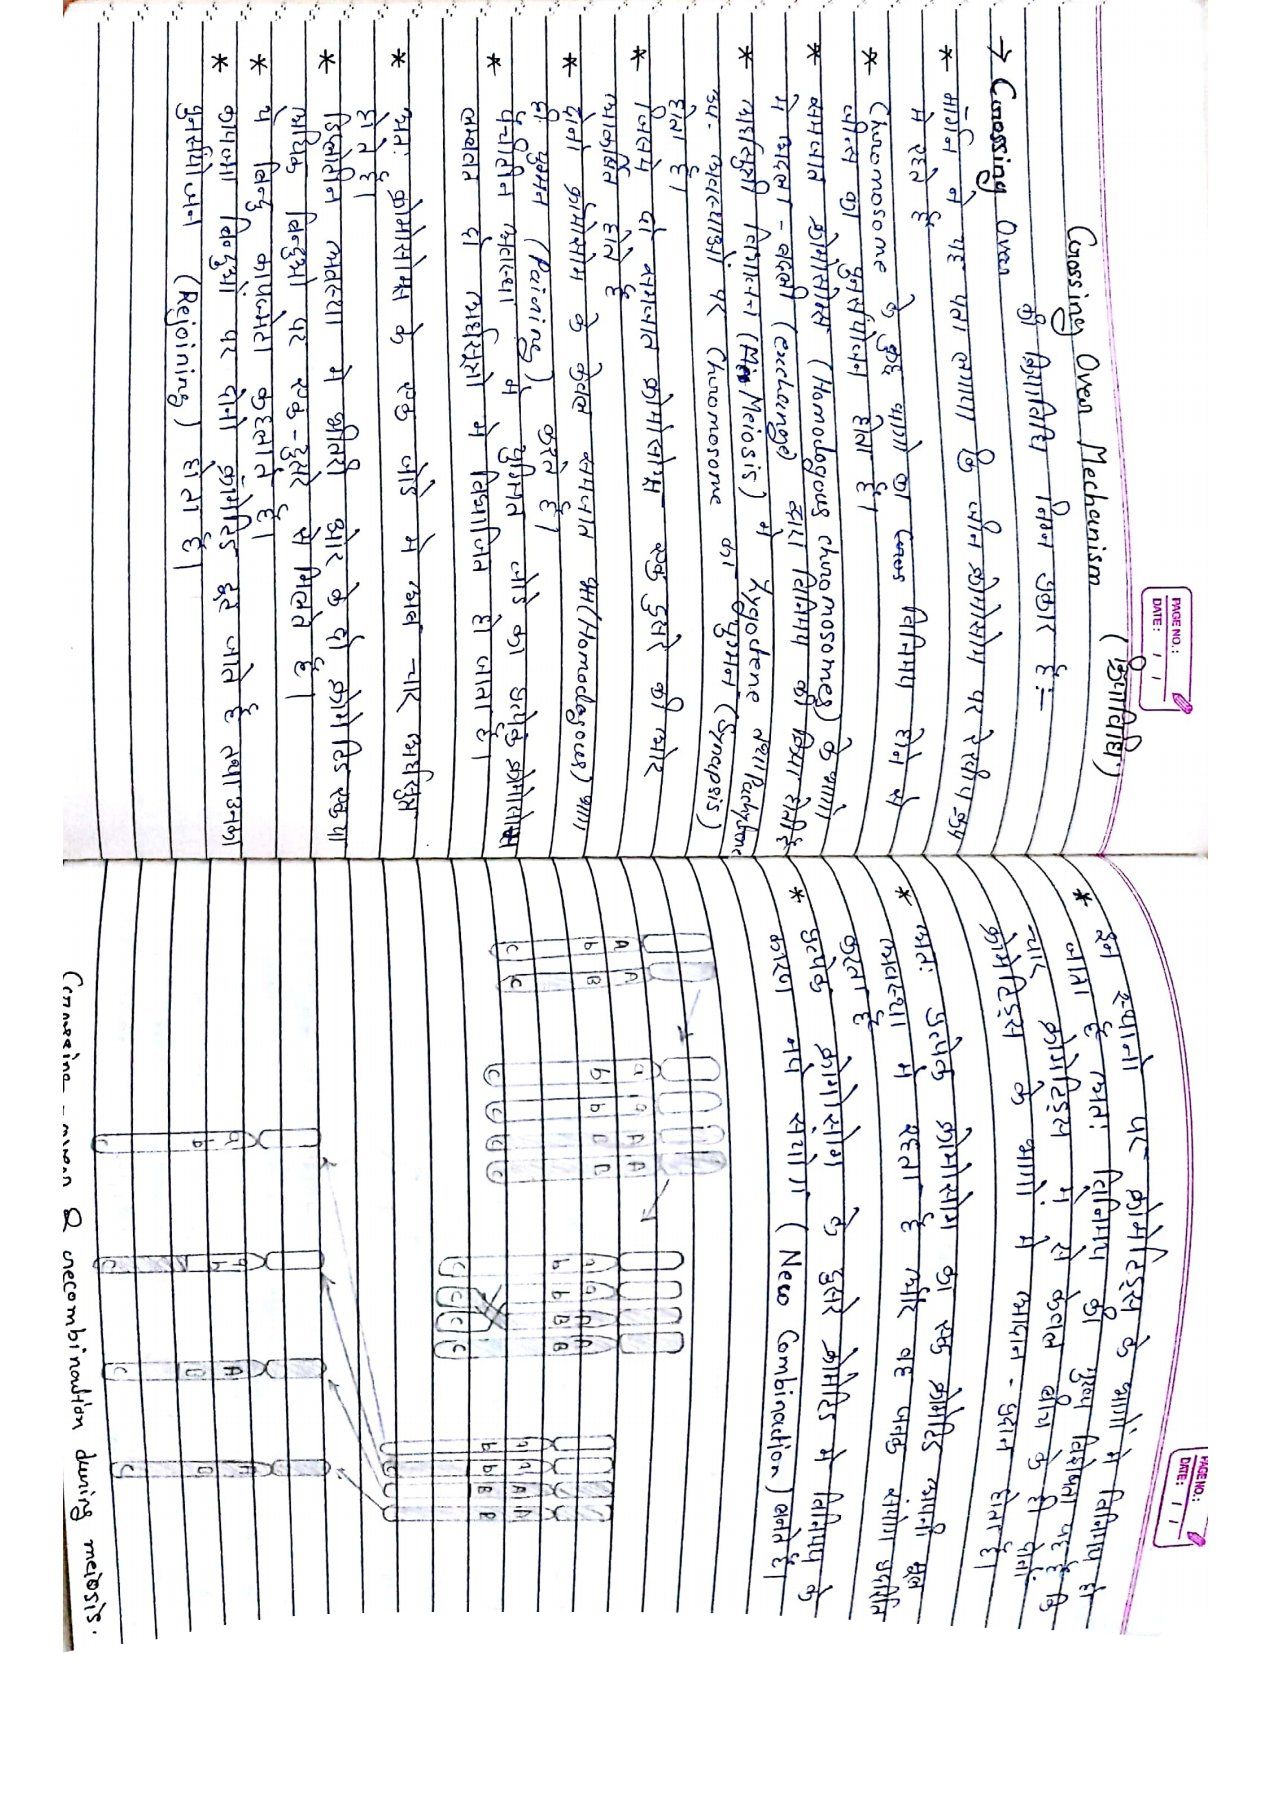 PAGE NO.:
DATE: / /
Crossing Over Mechanism
(क्रियाविधि)
→ Crossing Over की क्रियाविधि निम्न प्रकार है:-
* मॉर्गन ने यह पता लगाया कि जीन क्रोमोसोम पर रेखीय क्रम
में रहते हैं
* Chromosome के कुछ भागों का Cross विनिमय होने से
जीन्स का पुनर्संयोजन होता है।
* समजात क्रोमोसोम्स (Homologous chromosomes) के भागों
में अदला-बदली (exchange) द्वारा विनिमय की क्रिया होती है
* अर्धसूत्री विभाजन (Meiosis) में Zygotene तथा Pachytene
उप-अवस्थाओं पर Chromosome का युग्मन (Synapsis)
होता है।
* जिसमें दो समजात क्रोमोसोम्स एक दूसरे की ओर
आकर्षित होते हैं
* दोनों क्रोमोसोम के केवल समजात भाग (Homologous) भाग
ही युग्मन (Pairing) करते हैं।
* पैचीटीन अवस्था में युग्मित जोड़े का प्रत्येक क्रोमोसोम
लम्बवत दो अर्धसूत्रों में विभाजित हो जाता है।
* अतः क्रोमोसोम्स के एक जोड़े में अब चार अर्धसूत्र
होते हैं।
* डिप्लोटीन अवस्था में भीतरी ओर के दो क्रोमेटिड एक या
अधिक बिन्दुओं पर एक-दूसरे से मिलते हैं।
* ये बिन्दु कायज्मेटा कहलाते हैं।
* कायज्मा बिन्दुओं पर दोनों क्रोमेटिड टूट जाते हैं तथा उनका
पुनर्संयोजन (Rejoining) होता है।
PAGE NO.:
DATE: / /
* इन स्थानों पर क्रोमेटिड्स के भागों में विनिमय हो
जाता है अतः विनिमय की मुख्य विशेषता यह है कि
चार क्रोमेटिड्स में से केवल बीच के ही
क्रोमेटिड्स के भागों में आदान-प्रदान होता है।
* अतः प्रत्येक क्रोमोसोम का एक क्रोमेटिड अपनी मूल
अवस्था में रहता है और वह जनक संयोग प्रदर्शित
करता है
* प्रत्येक क्रोमोसोम के दूसरे क्रोमेटिड में विनिमय के
कारण नये संयोग (New Combination) बनते हैं।
A A
b B
C C
a a A A
b b B
C C C C
a a A A
b b B B
C C C C
a a A A
b b B B
a A
b b
C C C C
Crossing-over & recombination during meiosis.